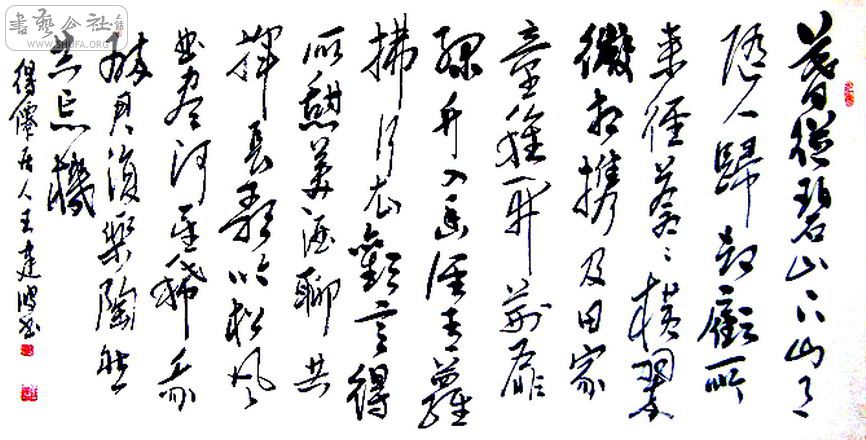 暮從碧山下山月
隨人歸却顧所
来徑蒼〻橫翠
微相携及田家
童稚開荊扉
綠竹入幽徑青蘿
拂行衣歡言得
所憩美酒聊共
揮長歌吟松风
曲尽河星稀我
醉君復樂陶然
共忘機
得僊居人王建波书
書藝公社
WWW.SHUFA.ORG